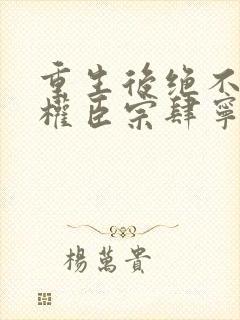 重生後绝不
權臣宗肆寧
楊萬貴